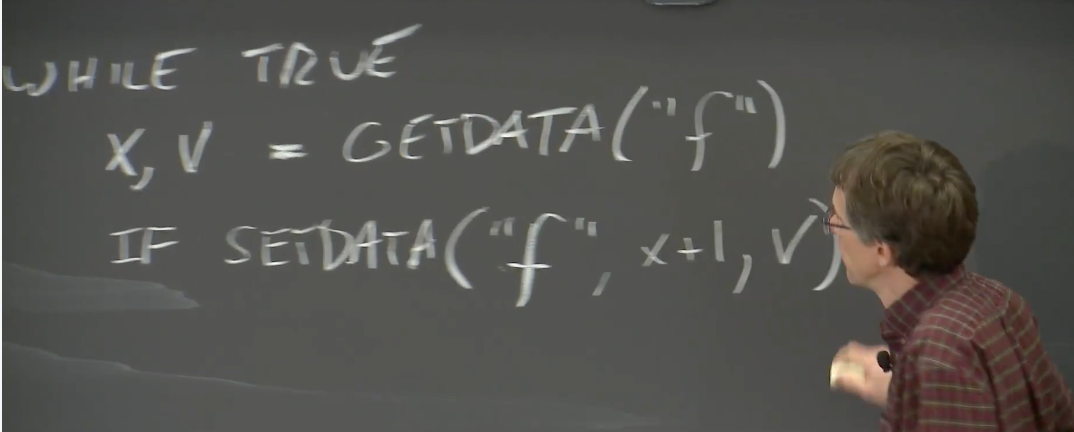 WHILE TRUE
X, V = GETDATA("f")
IF SETDATA("f", x+1, V)